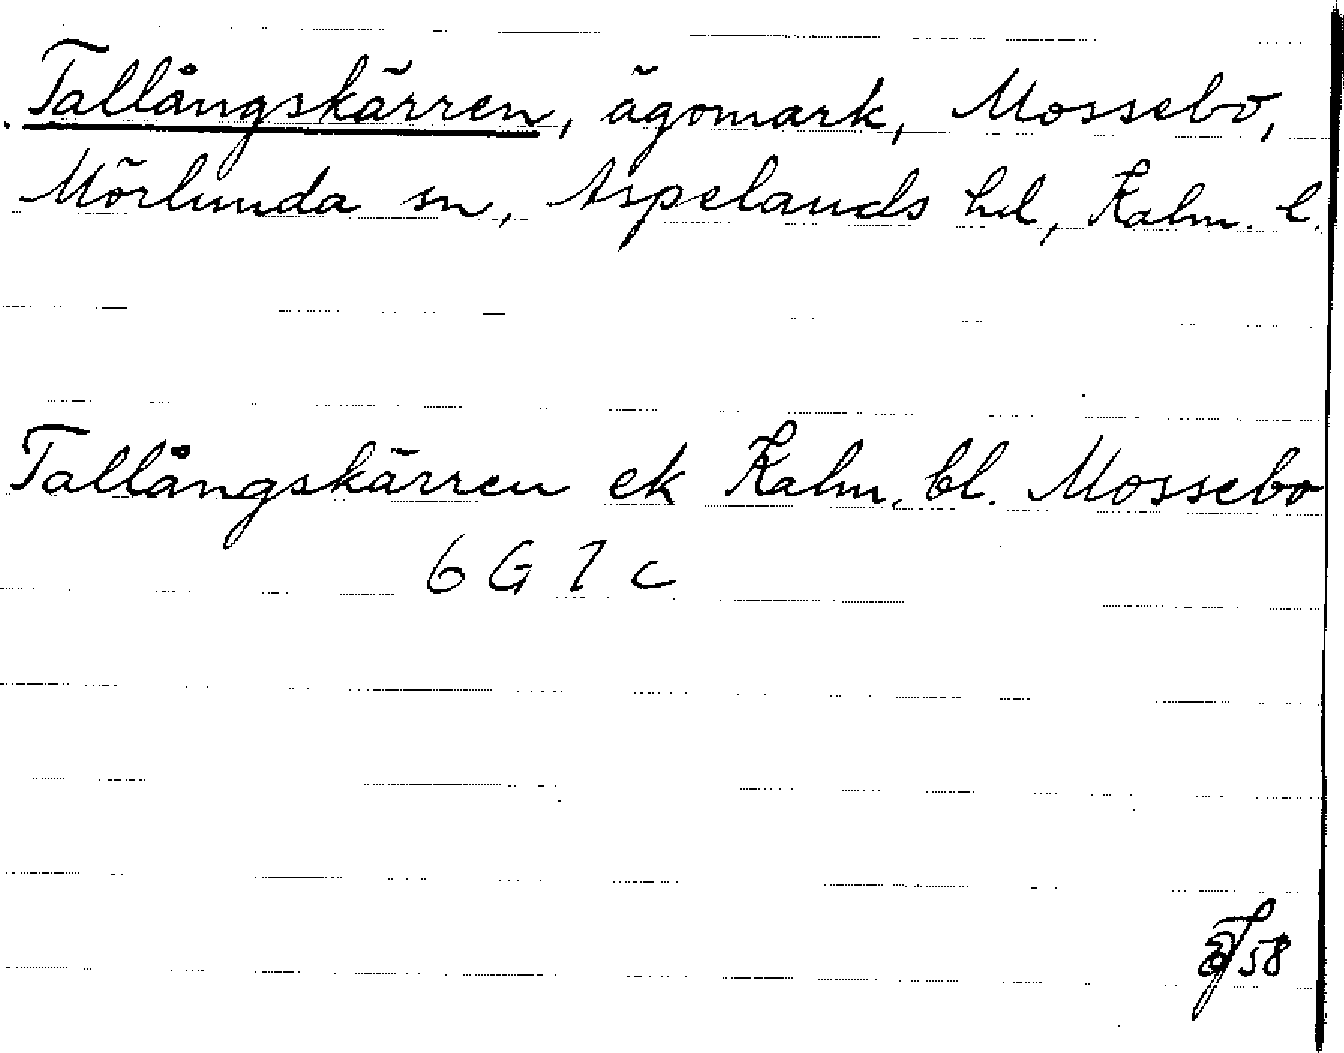 Tallångskärren, ägomark, Mossebo,
Mörlunda sn, Aspelands hd, Kalm. l.
Tallångskärren ek Kalm. bl. Mossebo
6 G 7 c
58